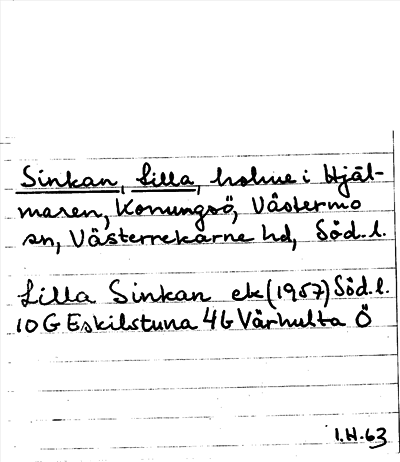 Sinkan, Lilla, holme i Hjäl-
maren, Konungsö, Västermo
sn, Västerrekarne hd, Söd. l.
Lilla Sinkan ek (1957) Söd. l.
10 G Eskilstuna 4 b Vårhulta Ö
I.H. 63